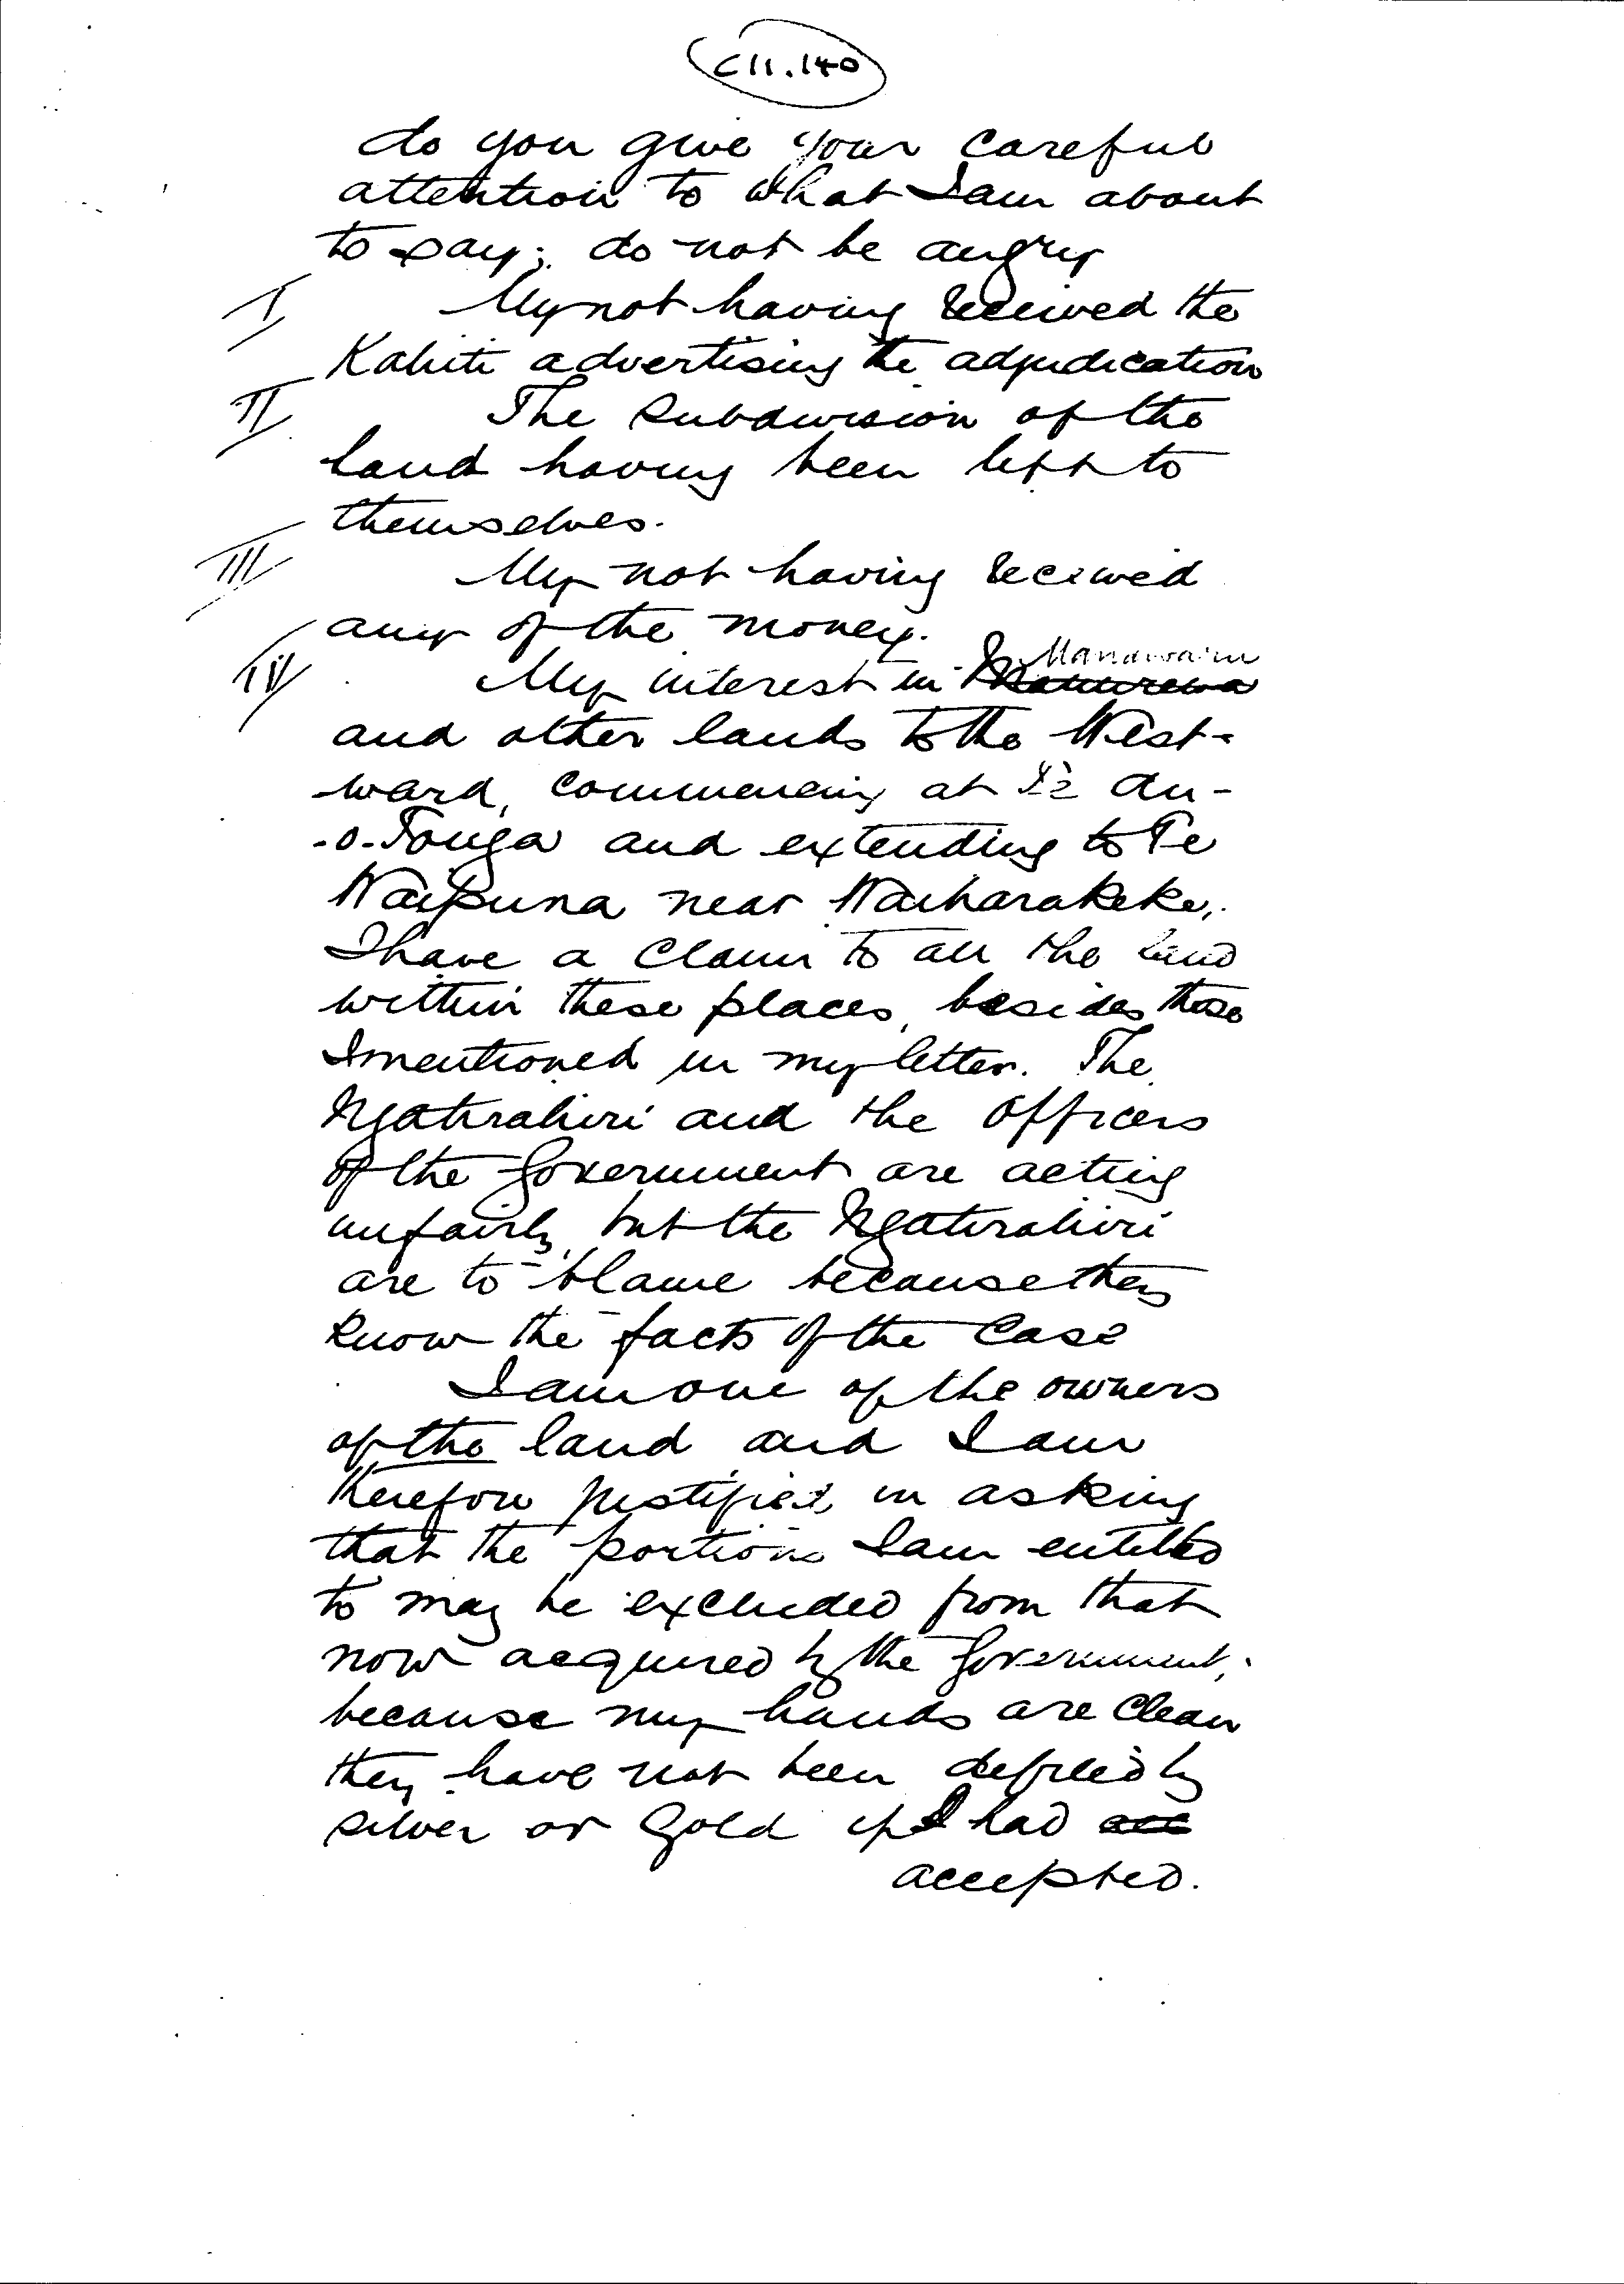 C11.140
do you give your careful
attention to what I am about
to say; do not be angry
I My not having received the
Kahiti advertising the adjudication
II The Subdivision of the
land having been left to
themselves.
III My not having received
any of the money.
Manawaru
IV My interest in
and other lands to the West-
ward, commencing at Te Au-
-o-Tonga and extending to Te
Waipuna near Waiharakeke,
I have a claim to all the land
within these places, besides those
I mentioned in my letter. The
Ngatirahiri and the Officers
of the Government are acting
unfairly, but the Ngatirahiri
are to blame because they
know the facts of the Case
I am one of the owners
of the land and I am
therefore justified in asking
that the portions I am entitled
to may be excluded from that
now acquired by the Government,
because my hands are clean
they have not been defiled by
silver or gold if I had acc
accepted.